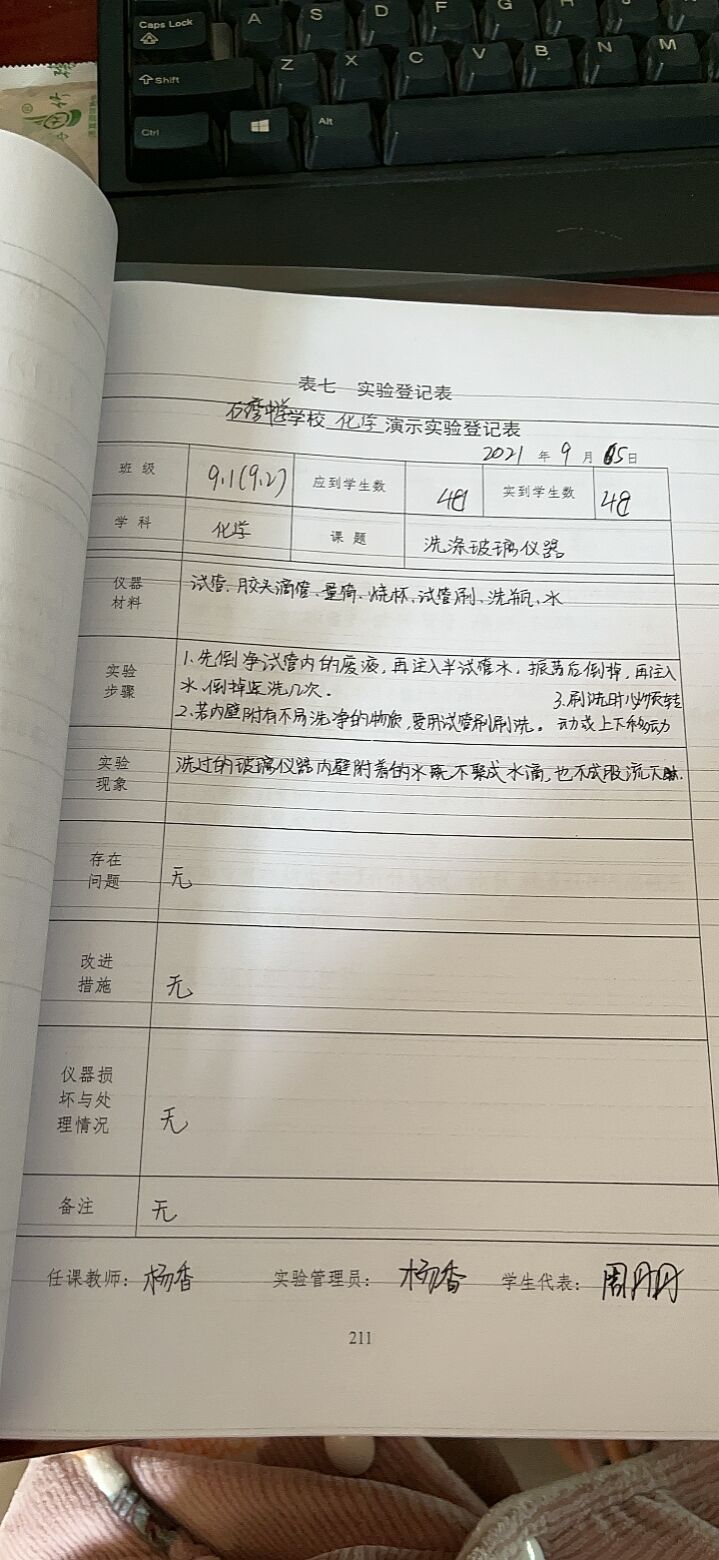 Caps Lock
A S D F G H
Shift
Z X C V B N M
Ctrl
Alt
表七 实验登记表
学校 化学 演示实验登记表
2021 年 9 月 05 日
班级 9.1(9.2) 应到学生数 48 实到学生数 48
学科 化学 课题 洗涤玻璃仪器
仪器材料 试管、胶头滴管、量筒、烧杯、试管刷、洗瓶、水
实验步骤 1.先倒净试管内的废液,再注入半试管水,振荡后倒掉,再注入
水,倒掉连洗几次。 3.刷洗时必须转
2.若内壁附有不易洗净的物质,要用试管刷刷洗。 动或上下移动
实验现象 洗过的玻璃仪器内壁附着的水既不聚成水滴,也不成股流下时.
存在问题 无
改进措施 无
仪器损坏与处理情况 无
备注 无
任课教师: 杨香 实验管理员: 杨香 学生代表: 周丹丹
211